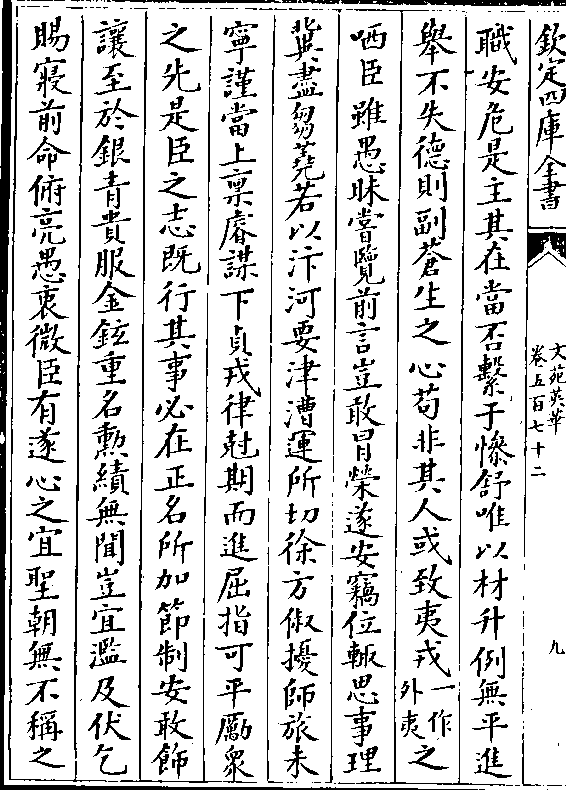 欽定四庫全書
文苑英華
卷五百七十二
九
職安危是主其在當否繫于慘舒唯以材升例無平進
舉不失德則副蒼生之心苟非其人或致夷戎一作外夷之
哂臣雖愚昧嘗覽前言豈敢冒榮遂安竊位輙思事理
冀盡芻蕘若以汴河要津漕運所切徐方俶擾師旅未
寧謹當上稟睿謀下貞戎律尅期而進屈指可平勵衆
之先是臣之志既行其事必在正名所加節制安敢飾
讓至於銀青貴服金鉉重名勲績無聞豈宜濫及伏乞
賜寢前命俯亮愚衷微臣有遂心之宜聖朝無不稱之